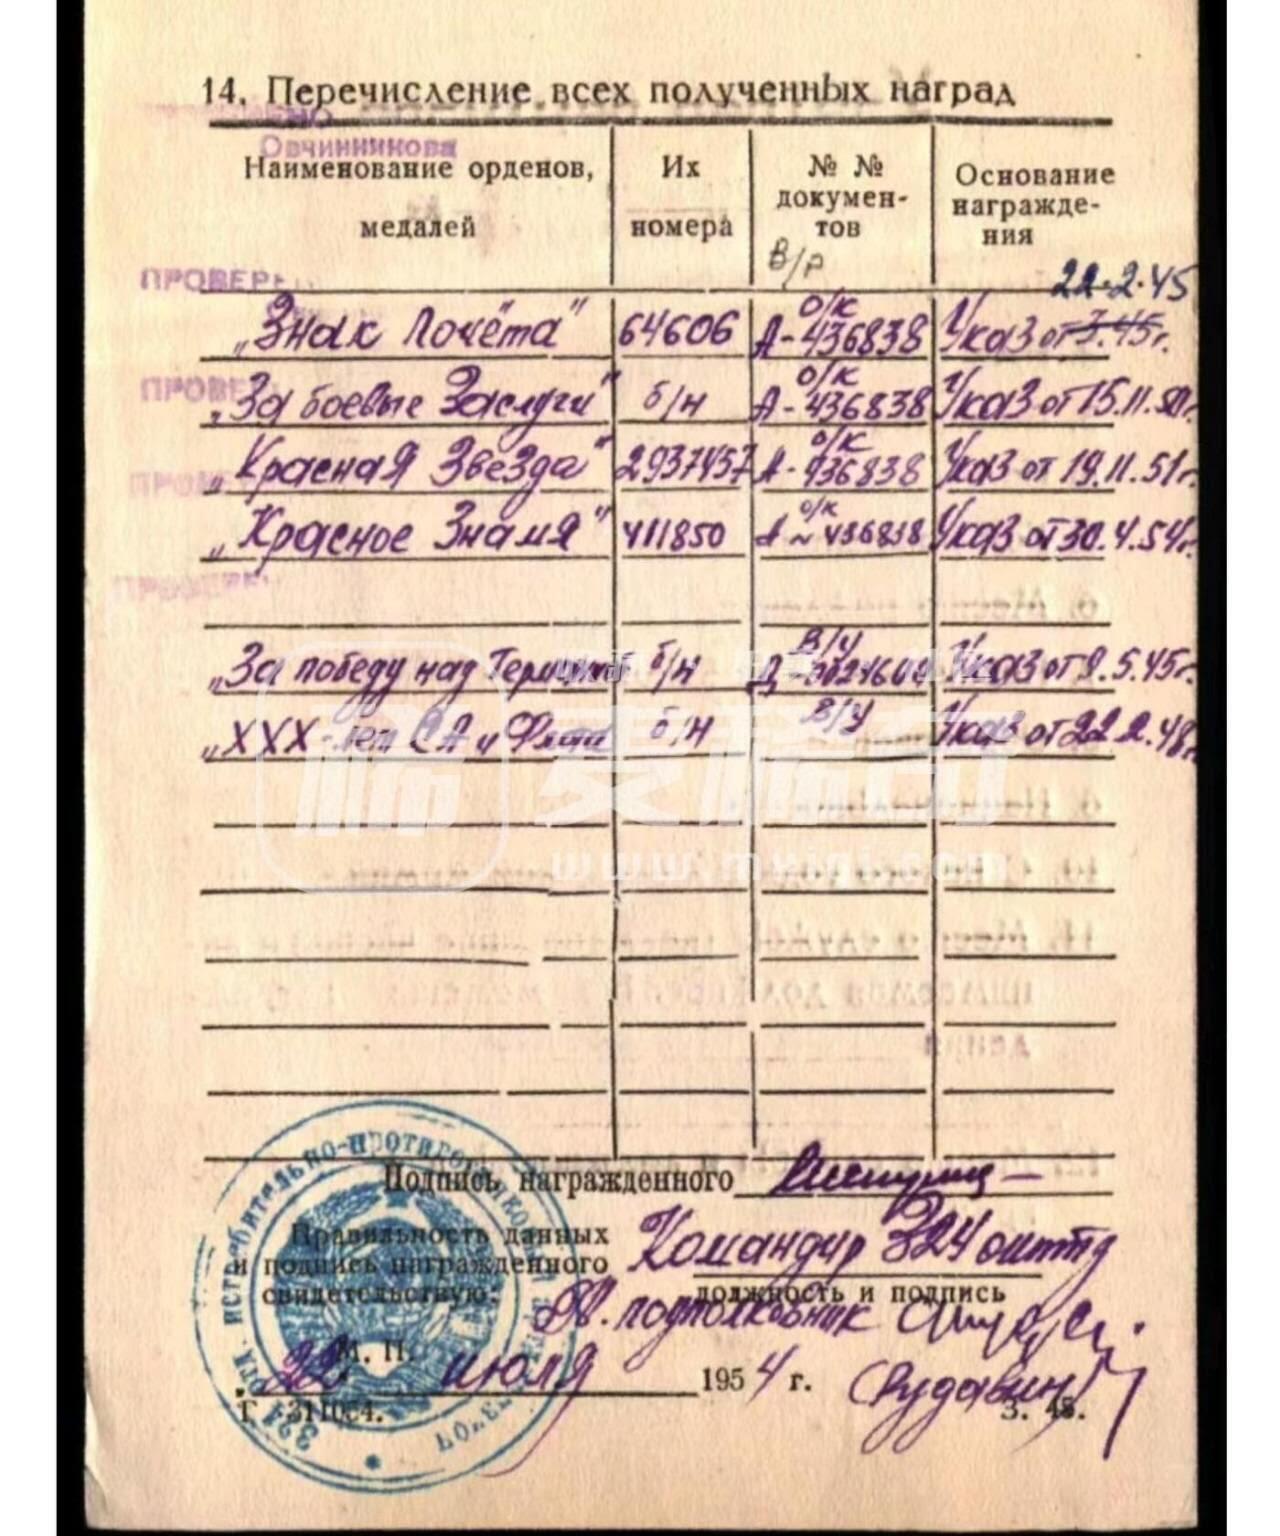 14. Перечисление всех полученных наград
Овчинникова
Наименование орденов, медалей
Их номера
№ № документов
Основание награждения
В/р
22.2.45
ПРОВЕРЕ
„Знак Почёта" 64606 о/к А-436838 Указ от 3.45г.
ПРОВЕ
„За боевые Заслуги" б/н о/к А-436838 Указ от 15.11.50г.
ПРОВЕР
„Красная Звезда" 2937457 о/к А-436838 Указ от 19.11.51г.
„Красное Знамя" 411850 о/к А-436838 Указ от 30.4.54г.
ПРОВЕРЕ
„За победу над б/н В/У Указ от 9.5.45г.
„XXX-лет СА и Флота б/н В/У Указ от 22.2.48г.
www.mxinj.com
Подпись награжденного
Правильность данных
и подпись награжденного
свидетельствую:
Командир 324 оиптд
должность и подпись
подполковник
М. П.
22 июля 1954 г.
Г-311054.
З. 48.